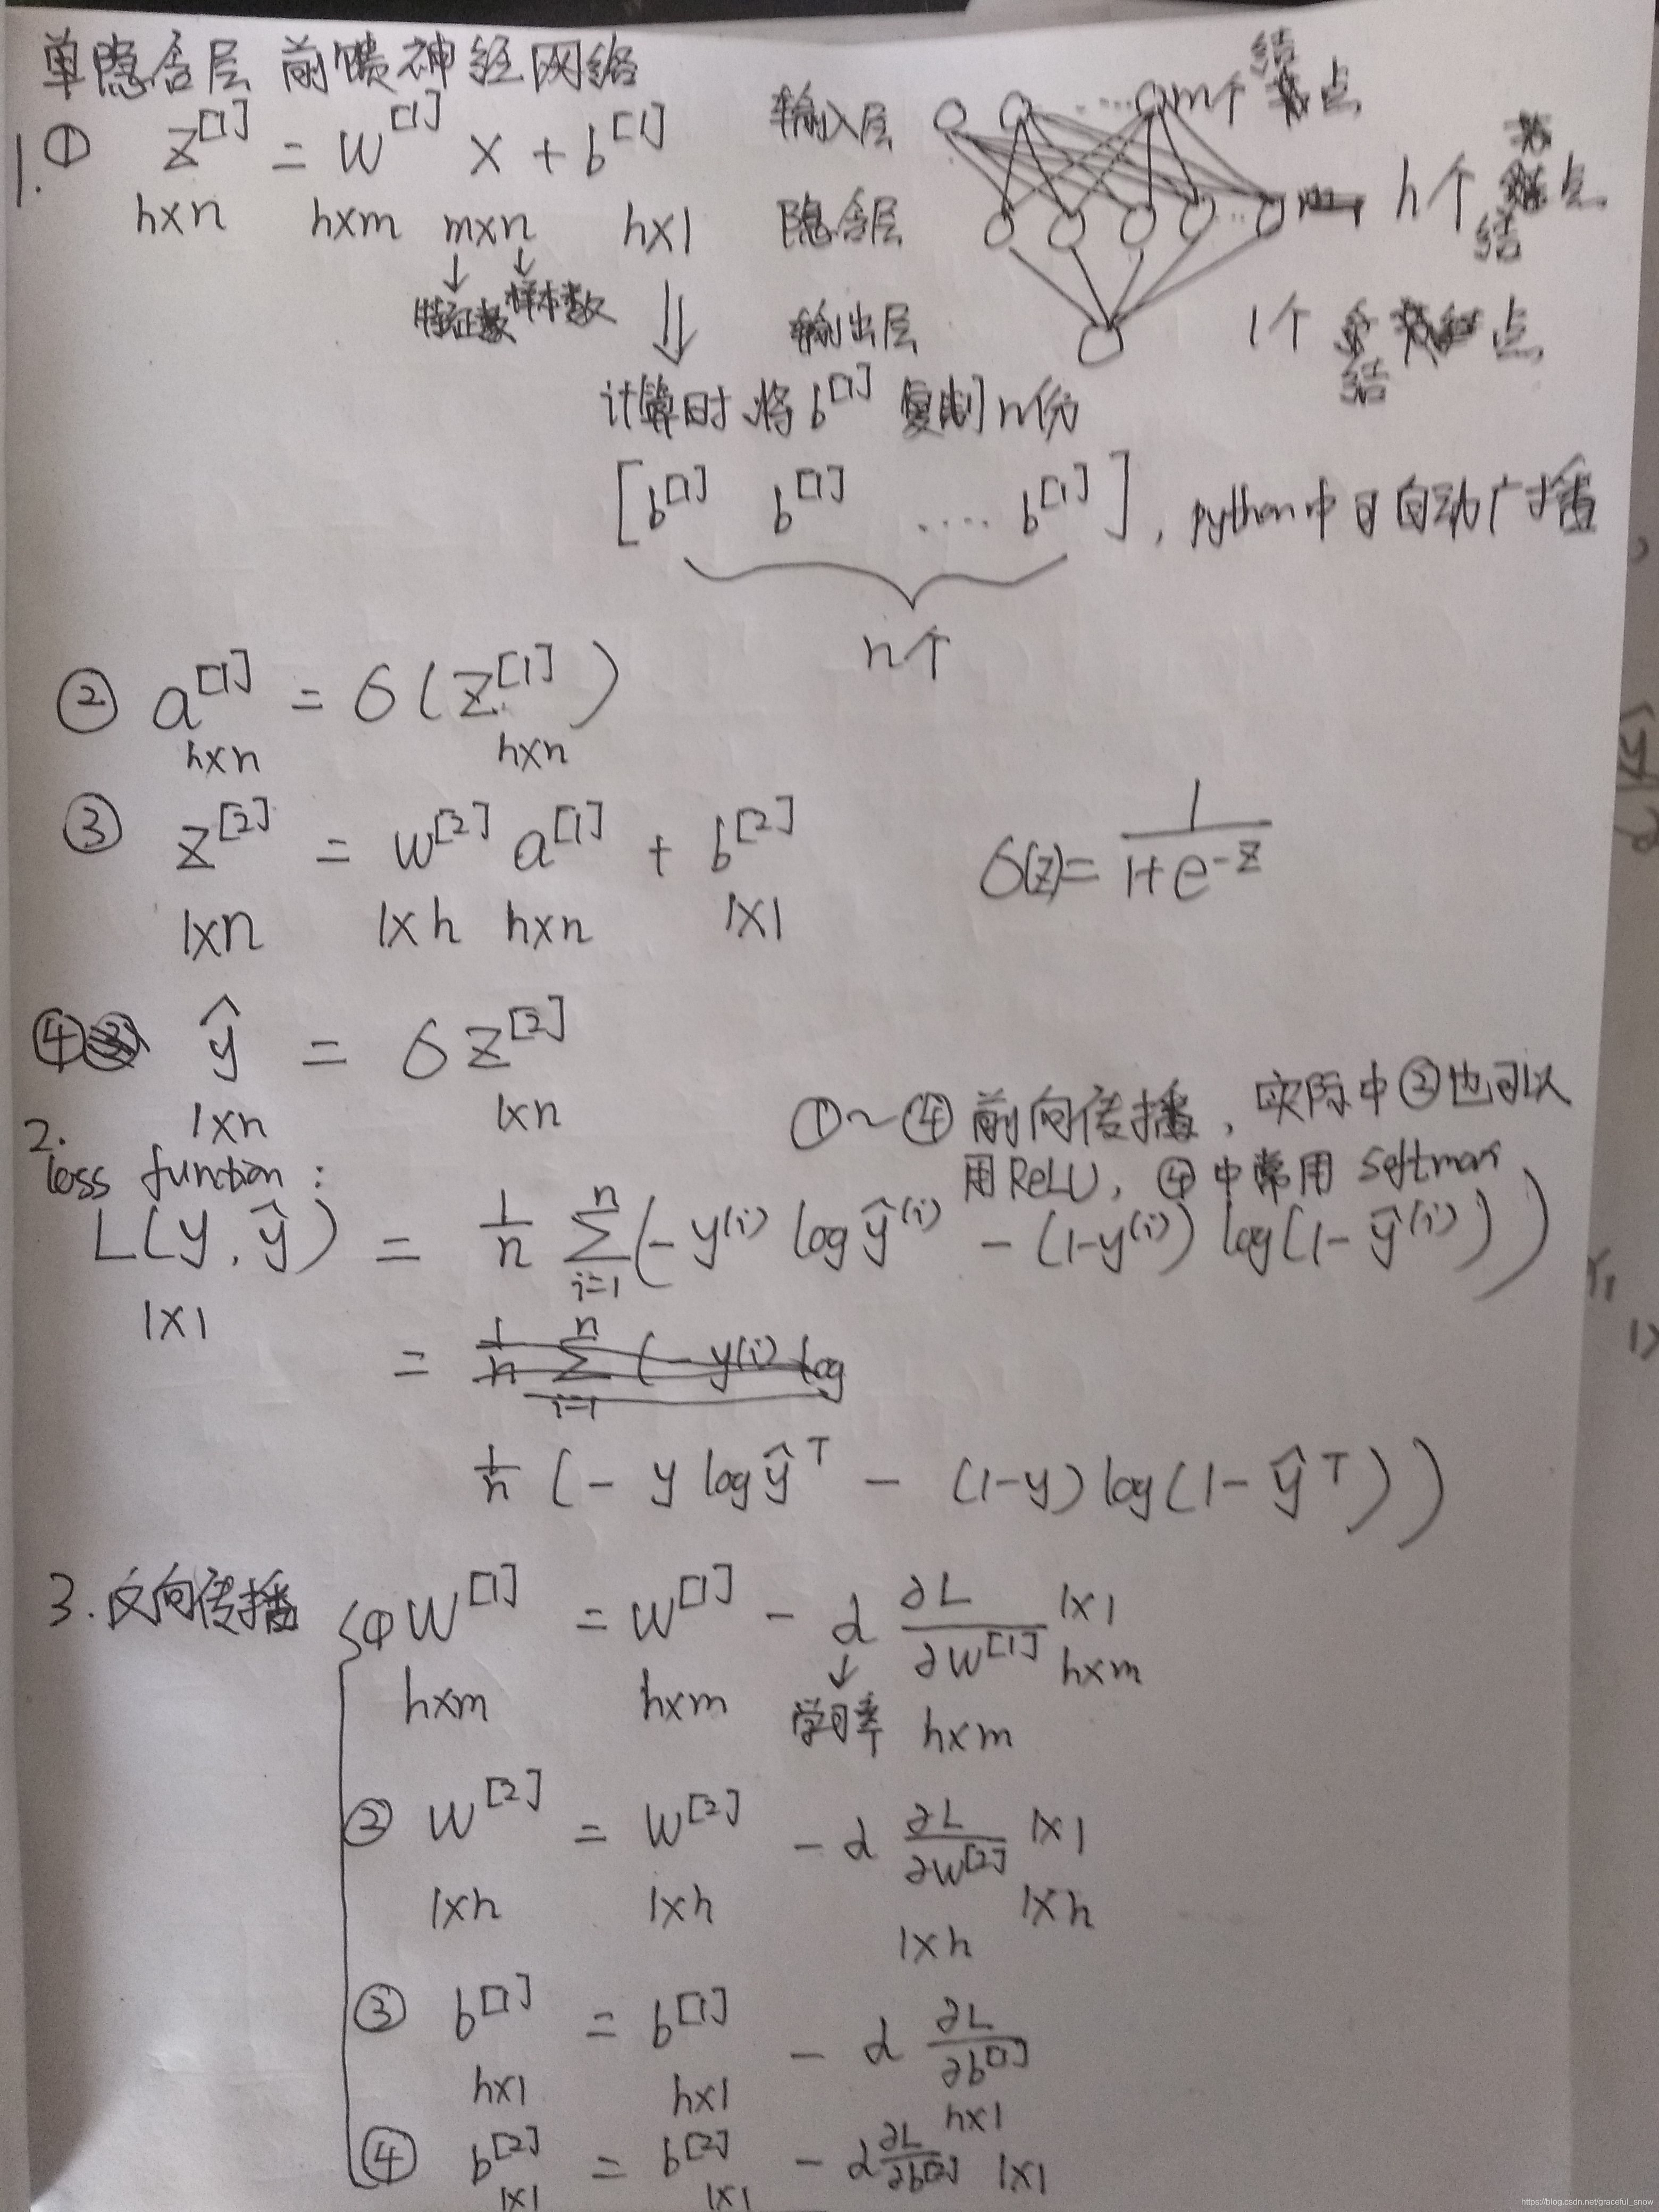 单隐含层 前馈神经网络
1. ① z^[1] = w^[1] x + b^[1]
h×n h×m m×n h×1
特征数 样本数
输入层 m个结点
隐含层 h个结点
输出层 1个结点
计算时将 b^[1] 复制 n份
[b^[1] b^[1] .... b^[1]], python中自动广播
n个
② a^[1] = σ(z^[1])
h×n h×n
③ z^[2] = w^[2] a^[1] + b^[2]
1×n 1×h h×n 1×1
σ(z) = 1/(1+e^-z)
④ ŷ = σ z^[2]
1×n 1×n
①~④ 前向传播, 实际中②也可以
用ReLU, ④中常用 softmax
2. loss function:
L(y, ŷ) = 1/n Σ_{i=1}^{n} (-y^(i) log ŷ^(i) - (1-y^(i)) log(1-ŷ^(i)))
1×1
= 1/n Σ_{i=1}^{n} (-y^(i) log
1/n (- y log ŷ^T - (1-y) log(1-ŷ^T))
3. 反向传播 ① w^[1] = w^[1] - α ∂L/∂w^[1] 1×1 h×m
h×m h×m 学习率 h×m
② w^[2] = w^[2] - α ∂L/∂w^[2] 1×1 1×h
1×h 1×h 1×h
③ b^[1] = b^[1] - α ∂L/∂b^[1]
h×1 h×1 h×1
④ b^[2] = b^[2] - α ∂L/∂b^[2] 1×1
1×1 1×1
https://blog.csdn.net/graceful_snow